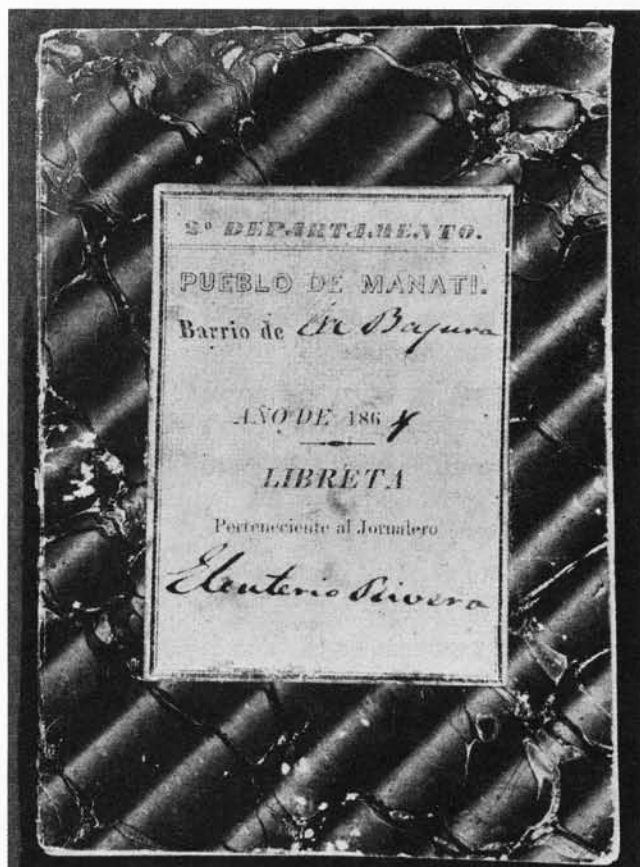 2º DEPARTAMENTO.
PUEBLO DE MANATI.
Barrio de Bajura
AÑO DE 186
LIBRETA
Perteneciente al Jornalero
Eleuterio Rivera